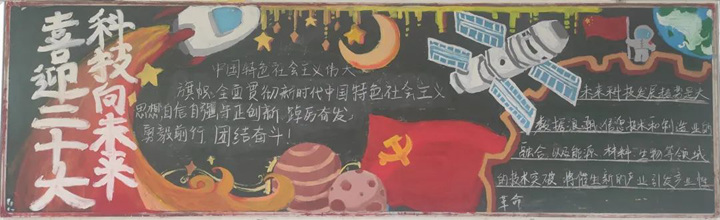 喜迎二十大
科技向未来
中国特色社会主义伟大
旗帜全面贯彻新时代中国特色社会主义
思想自信自强守正创新,踔厉奋发,
勇毅前行 团结奋斗!
未来科技发展趋势是大
数据浪潮、信息技术和制造业的
融合 以及能源、材料、生物等领域
的技术突破 将催生新的产业 引发产业性
革命